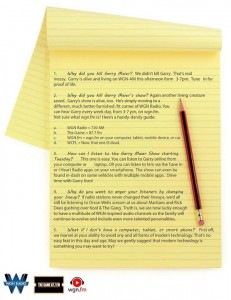 1. Why did you kill Garry Meier? We didn't kill Garry. That's real
messy. Garry is alive and living on WGN-AM this afternoon from 3-7pm. Tune in for
proof of life.
2. Why did you kill Garry Meier's show? Again another living creature
saved. Garry's show is alive, too. He's simply moving to a
different, much better-furnished/lit corner of WGN Radio. You
can hear Garry every week day, from 3-7 pm, on wgn.fm.
Not sure what wgn.fm is? Here's a handy-dandy guide:
a. WGN Radio = 720 AM
b. The Game = 87.7 fm
c. WGN.fm = wgn.fm on your computer, tablet, mobile device, or car
d. WTL = None, that one is dead.
3. How can I listen to the Garry Meier Show starting
Tuesday? This one is easy. You can listen to Garry online from
your computer or laptop. OR you can listen to him via the Tune In
or I Heart Radio apps on your smartphone. The show can even be
found in dash on some vehicles with multiple mobile apps. Drive
time with Garry has!
4. Why do you want to anger your listeners by changing
your lineup? If radio stations never changed their lineups, we'd all
still be listening to Orson Welles scream at us about Martians and Rick
Dees gushing over Food & The Gang. Truth is, we are now lucky enough
to have a multitude of WGN inspired audio channels so the family will
continue to evolve and include even more talented personalities.
5. What if I don't have a computer, tablet, or smart phone? First off,
we marvel at your ability to avoid any and all forms of modern technology. That's no
easy feat in this day and age. May we gently suggest that modern technology is
something you may want to try?
WGN RADIO
THE GAME 87.7FM
wgn.fm